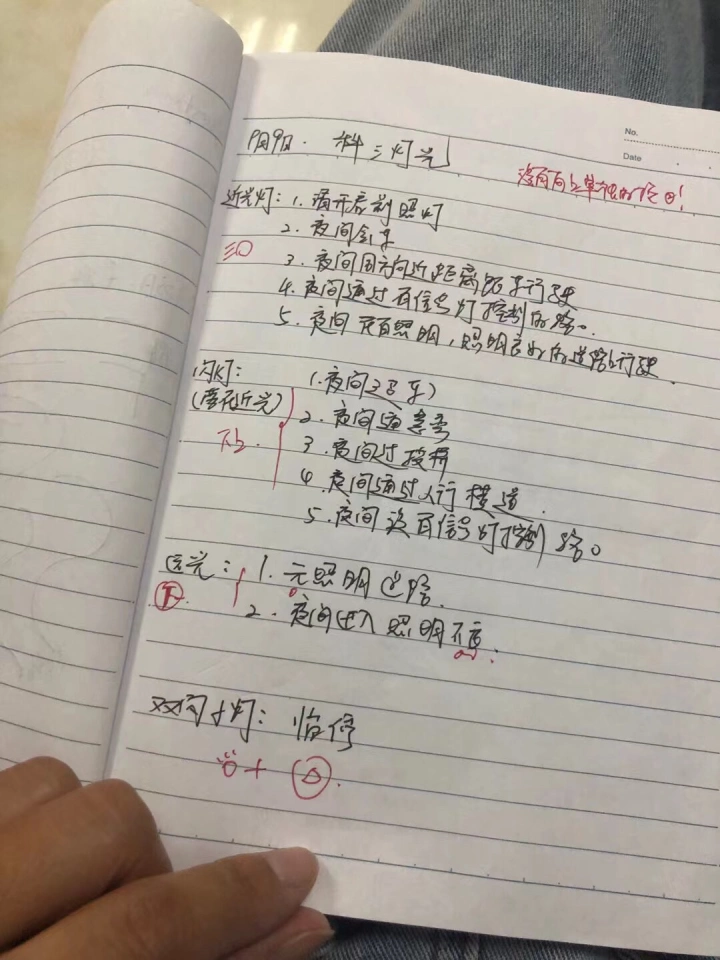 No.
Date
1月9日. 科三灯光
近光灯: 1. 请开启前照灯
2. 夜间会车
3. 夜间同方向近距离跟车行驶
4. 夜间通过有信号灯控制的路口.
5. 夜间在有照明,照明良好的道路上行驶.
闪灯: 1. 夜间超车
(远近光) 2. 夜间通过急弯
3. 夜间过拱桥
4. 夜间通过人行横道.
5. 夜间没有信号灯控制路口
远光: 1. 无照明道路.
下
2. 夜间进入照明不良.
双闪+灯: 临停